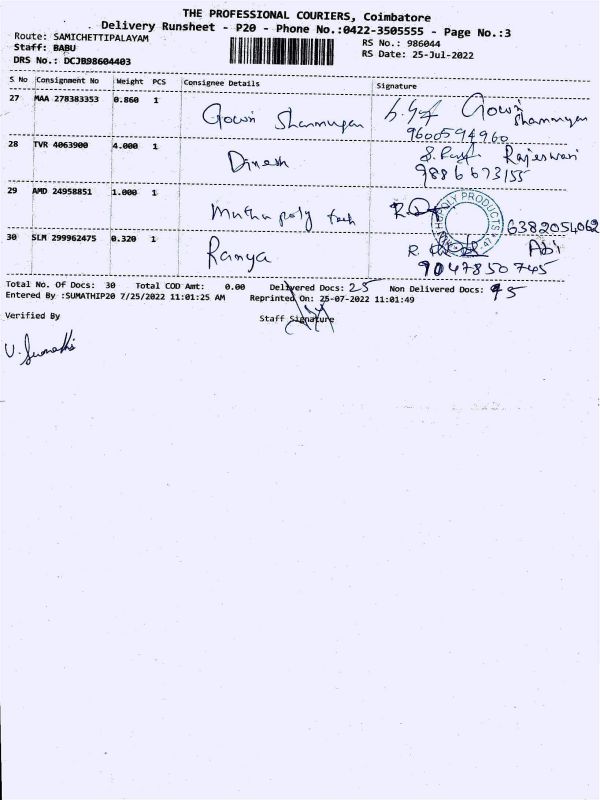 THE PROFESSIONAL COURIERS, Coimbatore
Delivery Runsheet - P20 - Phone No.:0422-3505555 - Page No.:3
Route: SAMICHETTIPALAYAM
RS No.: 986044
Staff: BABU
RS Date: 25-Jul-2022
DRS No.: DCJB98604403
S No Consignment No Weight PCS Consignee Details Signature
27 MAA 278383353 0.860 1 Gowri Shanmugan Gowri Shanmugan
9600594960
28 TVR 4063900 4.000 1 Dinesh Rajeswari
9886673155
29 AMD 24958851 1.000 1 Muthu poly tech POLY PRODUCTS 6382054062
30 SLM 299962475 0.320 1 Ramya Abi
9047850745
Total No. Of Docs: 30 Total COD Amt: 0.00 Delivered Docs: 25 Non Delivered Docs: 5
Entered By :SUMATHIP20 7/25/2022 11:01:25 AM Reprinted On: 25-07-2022 11:01:49
Verified By Staff Signature
V. Sumathi